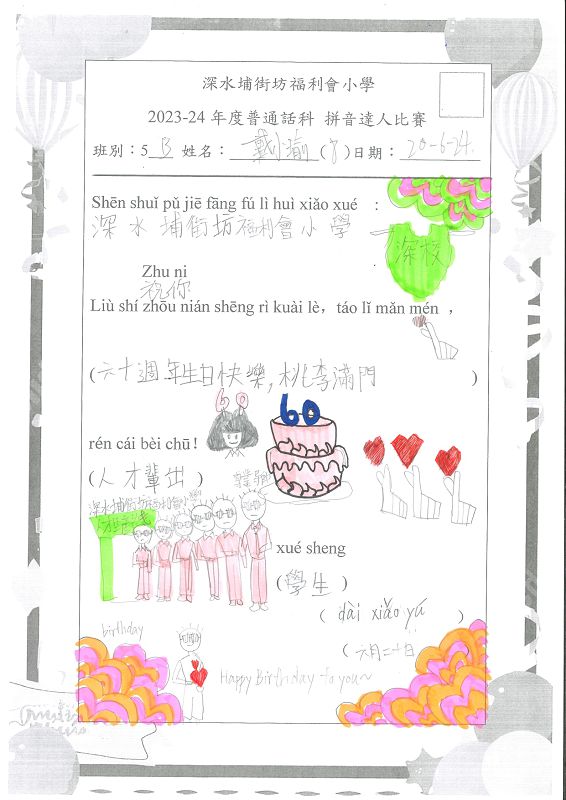 深水埔街坊福利會小學
2023-24 年度普通話科 拼音達人比賽
班別：5 B 姓名： (8)日期：20-6-24
Shēn shuǐ pù jiē fāng fú lì huì xiǎo xué ：
深水埔街坊福利會小學
深校
Zhu ni
祝你
Liù shí zhōu nián shēng rì kuài lè，táo lǐ mǎn mén ，
(六十週年生日快樂，桃李滿門 )
60
60
rén cái bèi chū！
(人才輩出)
深水埔街坊福利會小學
xué sheng
(學生)
(dài xiǎo yú )
birthday
(六月二十日
Happy Birthday to you~